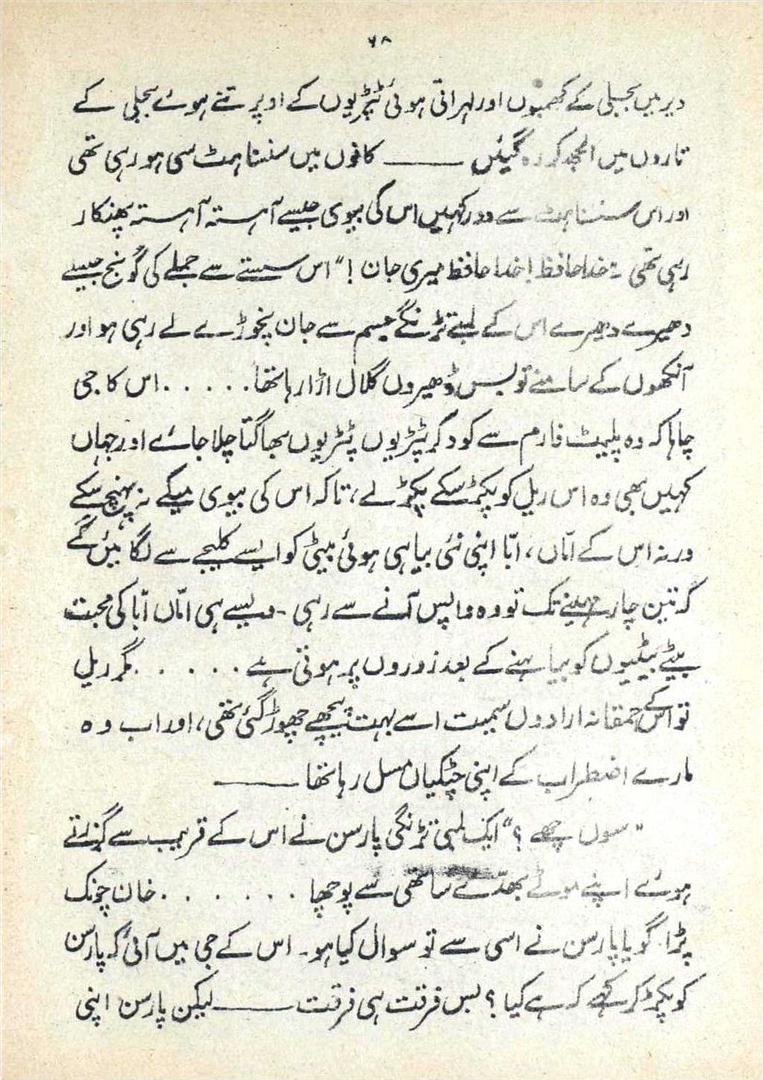 ۶۸
دیر میں بجلی کے کھمبوں اور لہراتی ہوئی ٹپڑیوں کے اوپر تنے ہوئے بجلی کے
تاروں میں الجھ کر رہ گیئں ——— کانوں میں سنسناہٹ سی ہو رہی تھی
اور اس سنسناہٹ سے دور کہیں اس کی بیوی جیسے آہستہ آہستہ پھنکار
رہی تھی "خدا حافظ! خدا حافظ میری جان!" اس سستے سے جملے کی گونج جیسے
دھیرے دھیرے اس کے لمبے تڑنگے جسم سے جان نچوڑے لے رہی ہو اور
آنکھوں کے سامنے تو بس ڈھیروں گلال اڑا رہا تھا ..... اس کا جی
چاہا کہ وہ پلیٹ فارم سے کود کر پٹڑیوں پٹڑیوں بھاگتا چلا جائے اور جہاں
کہیں بھی وہ اس ریل کو پکڑ سکے پکڑ لے، تاکہ اس کی بیوی میکے نہ پہنچ سکے
ورنہ اس کے اماں، ابا اپنی نئی بیاہی ہوئی بیٹی کو ایسے کلیجے سے لگائیں گے
کہ تین چار مہینے تک تو وہ واپس آنے سے رہی ۔ ویسے ہی اماں ابا کی محبت
بیٹے بیٹیوں کو بیاہنے کے بعد زوروں پر ہوتی ہے ..... مگر ریل
تو اس کے احمقانہ ارادوں سمیت اسے بہت پیچھے چھوڑ گئی تھی، اور اب وہ
مارے اضطراب کے اپنی چٹکیاں مسل رہا تھا ———
"سوں چھے؟" ایک لمبی تڑنگی پارسن نے اس کے قریب سے گزرتے
ہوئے اپنے موٹے بھدّے ساتھی سے پوچھا ...... خان چونک
پڑا گویا پارسن نے اسی سے تو سوال کیا ہو۔ اس کے جی میں آئی کہ پارسن
کو پکڑ کر کہے کہ ہے کیا؟ بس فرقت ہی فرقت ——— لیکن پارسن اپنی